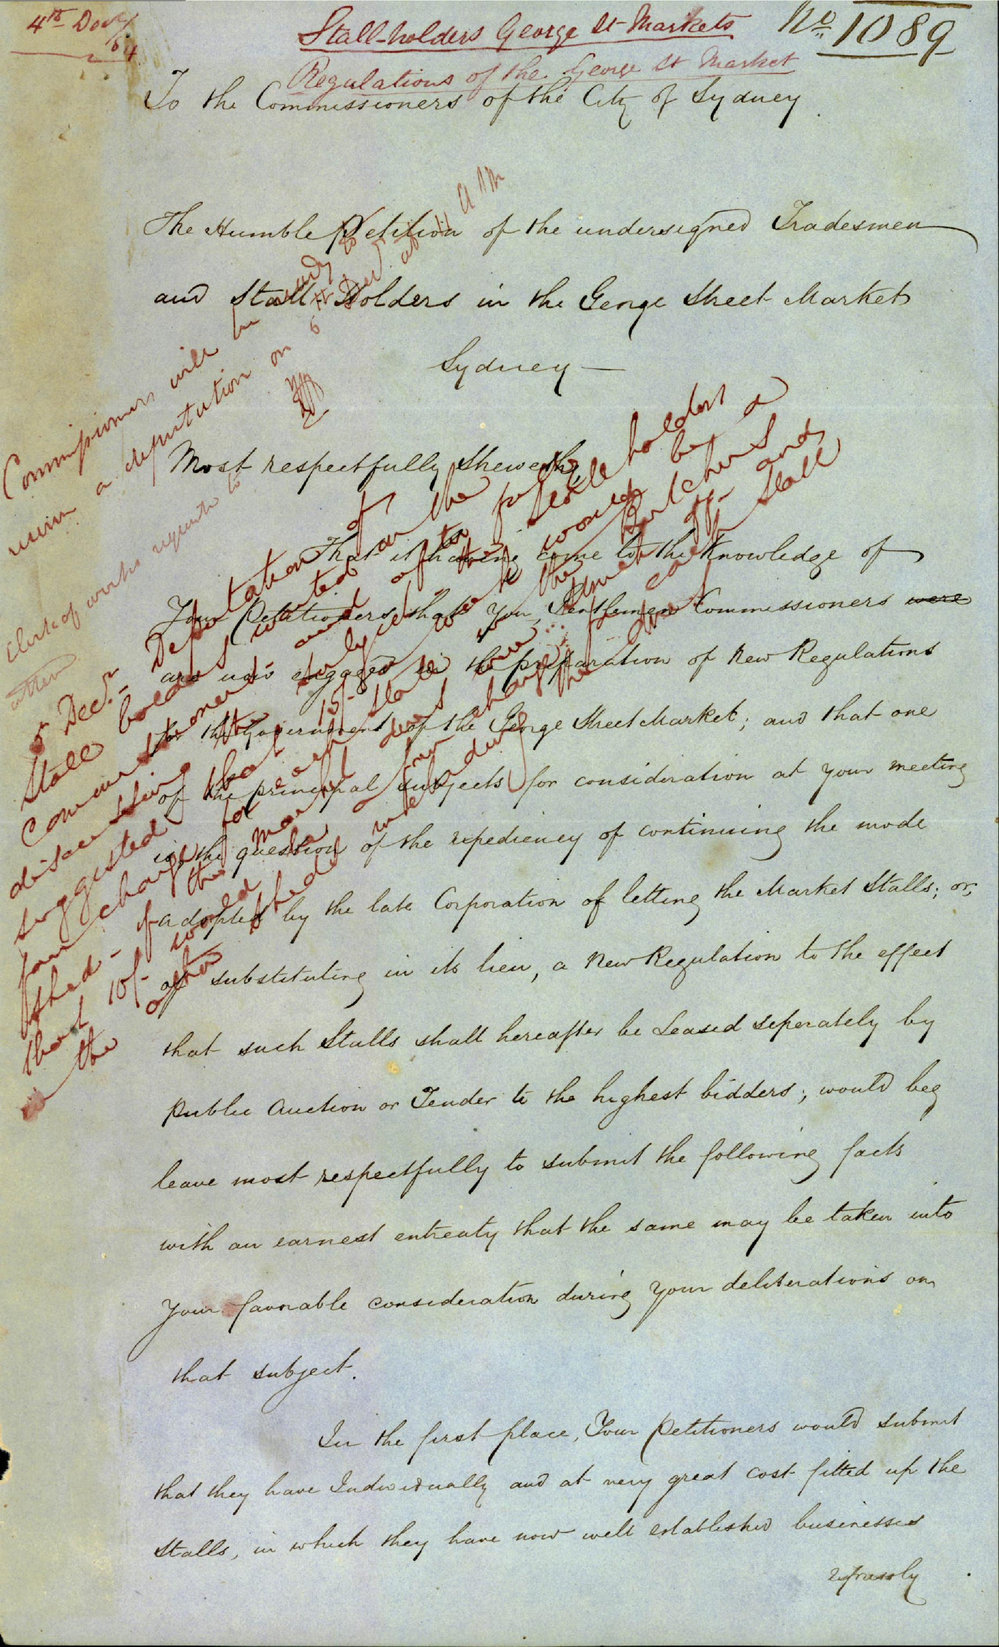 4th Decr/54
Stall-holders George St Markets
No. 1089
Regulations of the George St Market
To the Commissioners of the City of Sydney.
The Humble Petition of the undersigned Tradesmen
and Stall Holders in the George Street Market
Sydney —
Most respectfully Sheweth,
That it having come to the Knowledge of
Your Petitioners that You, Gentlemen Commissioners were
are now engaged in the preparation of New Regulations
for the Government of the George Street Market; and that one
of the principal subjects for consideration at your meeting
is the question of the expediency of continuing the mode
adopted by the late Corporation of letting the Market Stalls; or,
of substituting in its lieu, a New Regulation to the effect
that such Stalls shall hereafter be Leased seperately by
Public Auction or Tender to the highest bidders; would beg
leave most respectfully to submit the following facts
with an earnest entreaty that the same may be taken into
Your favorable consideration during Your deliberations on
that subject.
In the first place, Your Petitioners would submit
that they have Individually and at very great cost fitted up the
Stalls, in which they have now well established businesses
Commissioners will be ready to
receive a deputation on 6th Decr at 11 AM
Clerk of works requested to
attend
5 Decr. Deputation of
Stall holders waited on the
Commissioners and after fully
discussing the subject the Stall holders
suggested that 15/- a week would be a
fair charge for each Stall in the Butchers
shed - if the market dues were struck off - and
that 10/- would be a fair charge for each Stall
in the other sheds including the dues